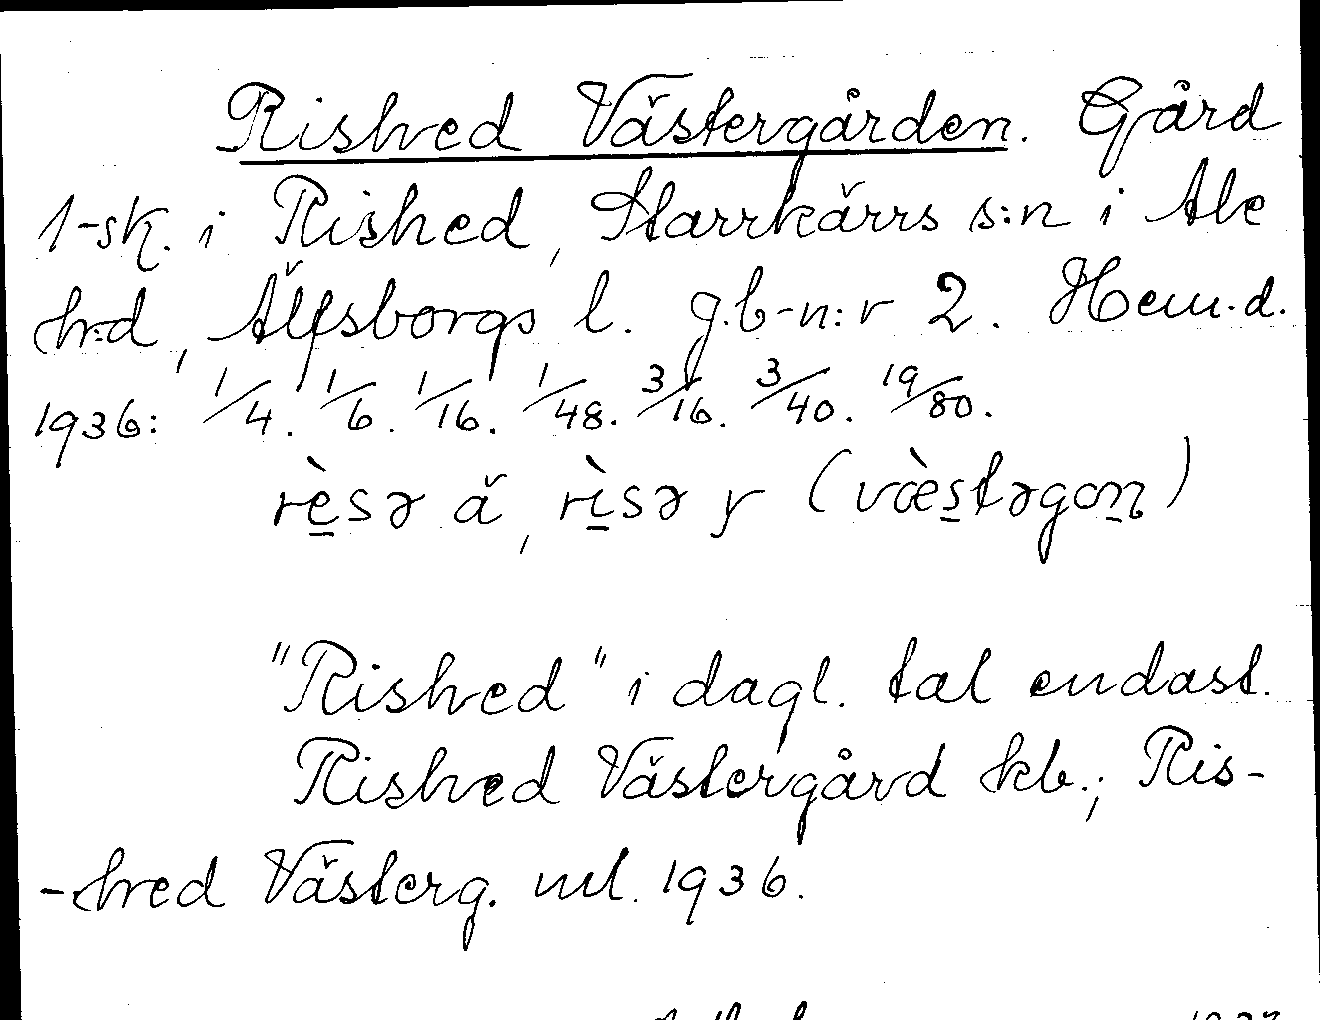 Rishved Västergården. Gård
1-sk. i Rished, Starrkärrs s:n i Ale
h:d, Älfsborgs l. g.b-n:r 2. Hem.d.
1936: 1/4. 1/6. 1/16. 1/48. 3/16. 3/40. 19/80.
rèsə ä, rìsə y (væ̀stəgon)
"Rishved" i dagl. tal endast.
Rishved Västergård kb.; Ris-
-hved Västerg. ml. 1936.